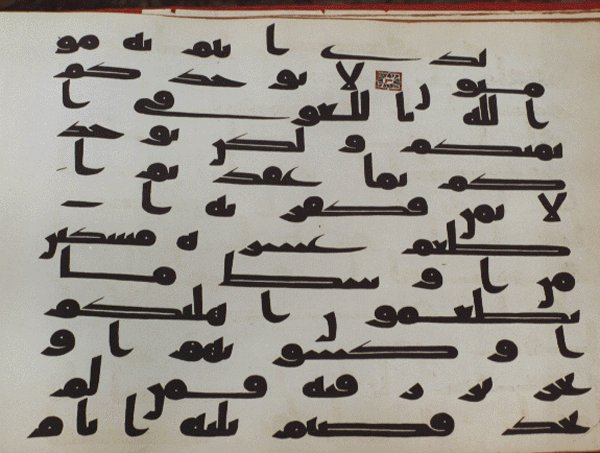 لذى انتم به مو
منون لا يوخذكم
الله باللغو فى ا
يمنكم ولكن يوخذ
كم بما عقدتم ا
لايمن فكفرته ا
طعم عشرة مسكين
من اوسط ما
تطعمون اهليكم
او كسوتهم او
تحرير رقبة فمن لم
يجد فصيم ثلثة ايام